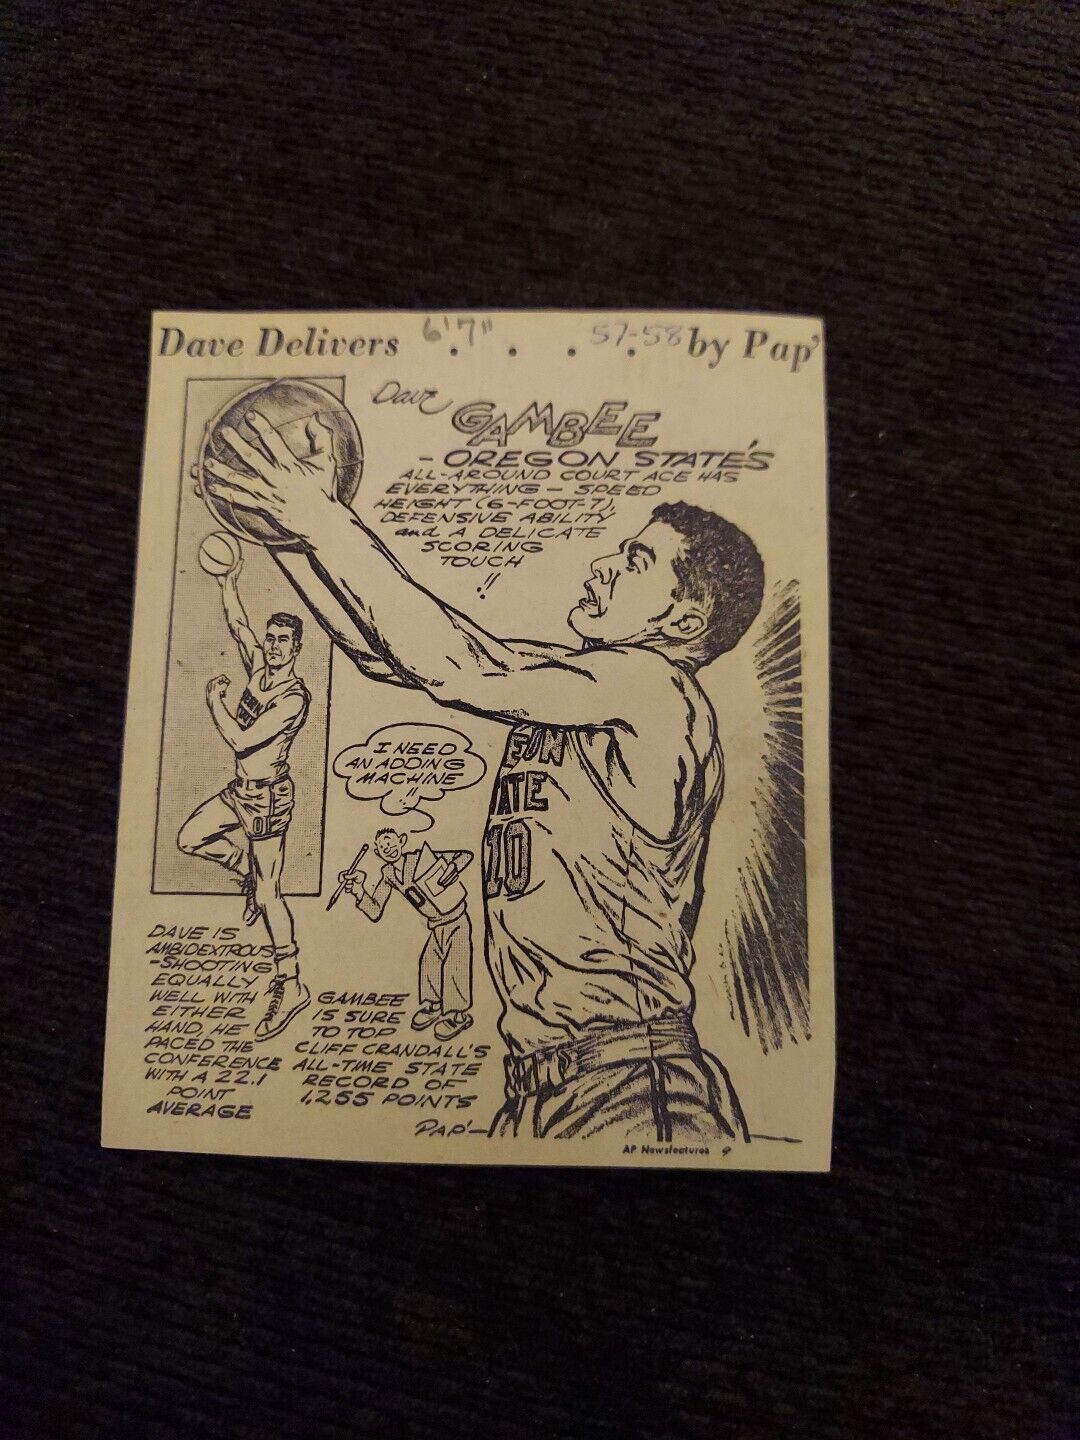 Dave Delivers . . . . by Pap'
6'7" 57-58
Dave
GAMBEE
- OREGON STATE'S
ALL-AROUND COURT ACE HAS
EVERYTHING - SPEED
HEIGHT (6-FOOT-7),
DEFENSIVE ABILITY
and A DELICATE
SCORING
TOUCH
!!
I NEED
AN ADDING
MACHINE
!!
EGON
ATE
10
DAVE IS
AMBIDEXTROUS
-SHOOTING
EQUALLY
WELL WITH
EITHER
HAND, HE
PACED THE
CONFERENCE
WITH A 22.1
POINT
AVERAGE
GAMBEE
IS SURE
TO TOP
CLIFF CRANDALL'S
ALL-TIME STATE
RECORD OF
1,255 POINTS
PAP'-
AP Newsfeatures